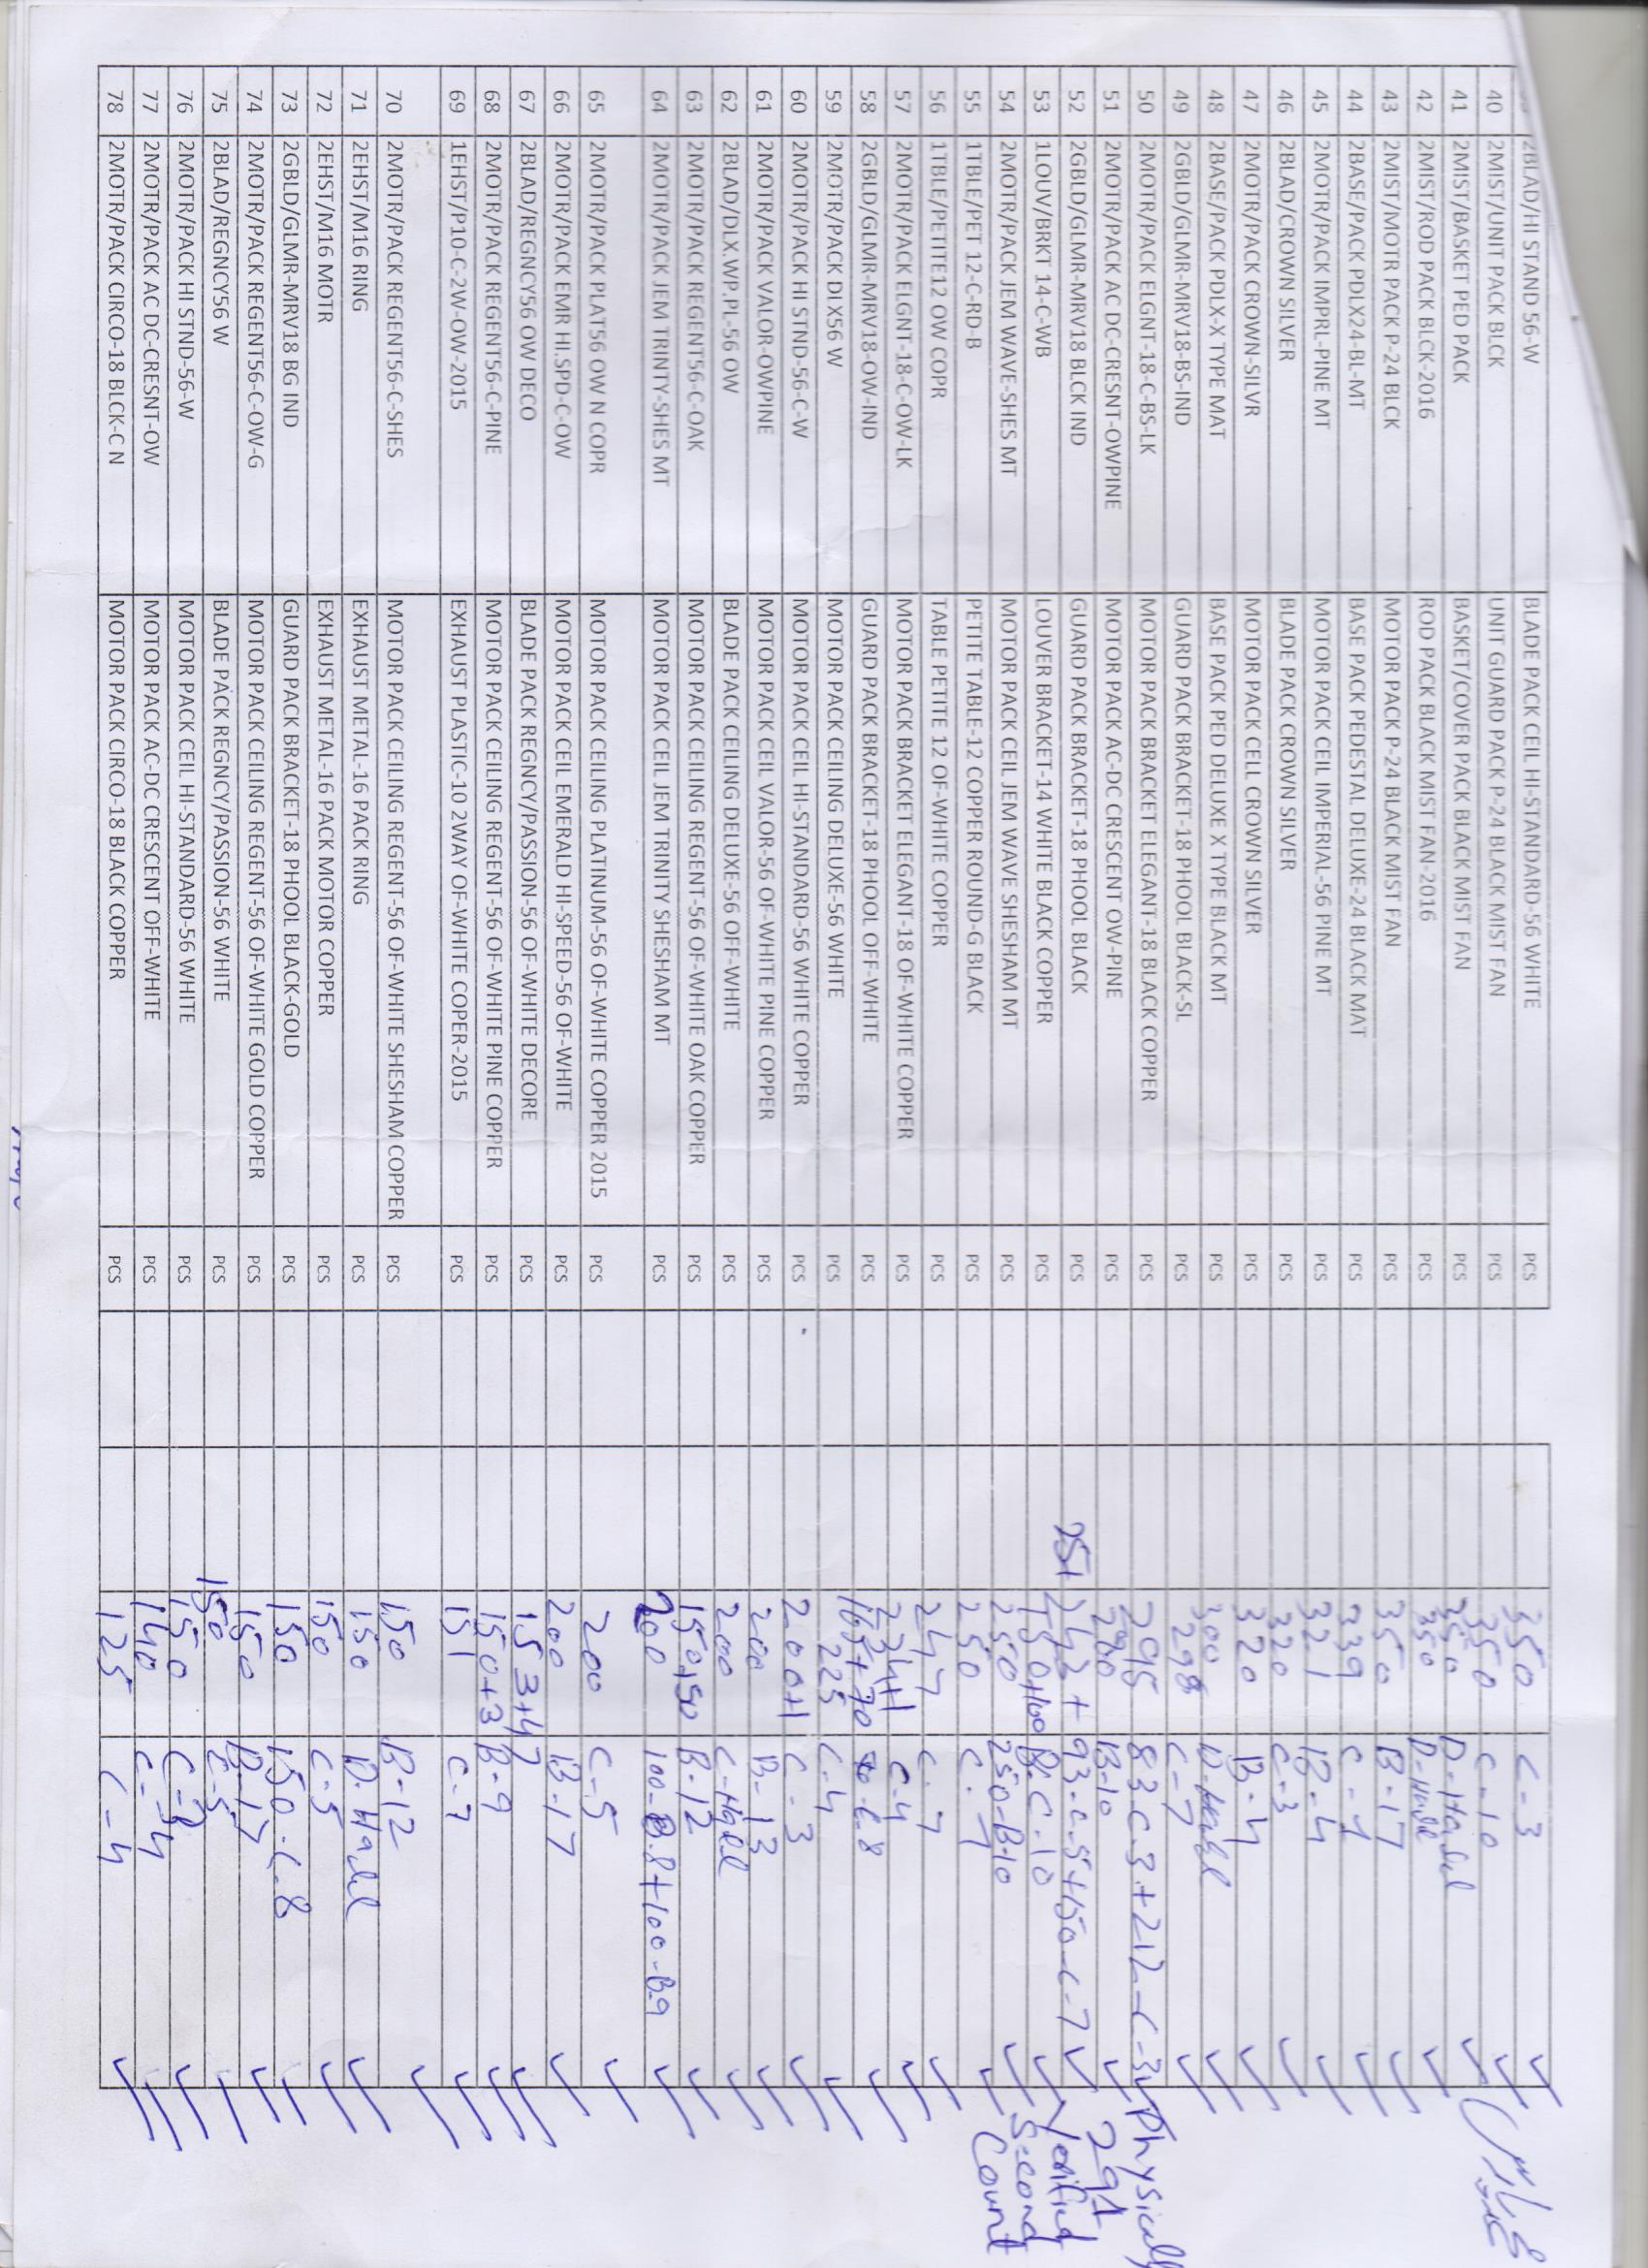 2BLAD/HI STAND 56-W BLADE PACK CEIL HI-STANDARD-56 WHITE PCS 350 C-3
40 2MIST/UNIT PACK BLCK UNIT GUARD PACK P-24 BLACK MIST FAN PCS 350 C-10
41 2MIST/BASKET PED PACK BASKET/COVER PACK BLACK MIST FAN PCS 350 D-Hall
42 2MIST/ROD PACK BLCK-2016 ROD PACK BLACK MIST FAN-2016 PCS 350 D-Hall
43 2MIST/MOTR PACK P-24 BLCK MOTOR PACK P-24 BLACK MIST FAN PCS 350 B-17
44 2BASE/PACK PDLX24-BL-MT BASE PACK PEDESTAL DELUXE-24 BLACK MAT PCS 339 C-1
45 2MOTR/PACK IMPRL-PINE MT MOTOR PACK CEIL IMPERIAL-56 PINE MT PCS 321 B-4
46 2BLAD/CROWN SILVER BLADE PACK CROWN SILVER PCS 320 C-3
47 2MOTR/PACK CROWN-SILVR MOTOR PACK CELL CROWN SILVER PCS 320 B-4
48 2BASE/PACK PDLX-X TYPE MAT BASE PACK PED DELUXE X TYPE BLACK MT PCS 300 D-Hall
49 2GBLD/GLMR-MRV18-BS-IND GUARD PACK BRACKET-18 PHOOL BLACK-SL PCS 298 C-7
50 2MOTR/PACK ELGNT-18-C-BS-LK MOTOR PACK BRACKET ELEGANT-18 BLACK COPPER PCS 295 83-C.3+212-C-3 Physically
51 2MOTR/PACK AC DC-CRESNT-OWPINE MOTOR PACK AC-DC CRESCENT OW-PINE PCS 280 B-10 291
52 2GBLD/GLMR-MRV18 BLCK IND GUARD PACK BRACKET-18 PHOOL BLACK PCS 243+ 93-C-5+150-C-7 Verified
53 1LOUV/BRKT 14-C-WB LOUVER BRACKET-14 WHITE BLACK COPPER PCS 150+100 C-10 Second
54 2MOTR/PACK JEM WAVE-SHES MT MOTOR PACK CEIL JEM WAVE SHESHAM MT PCS 250 250-B-10 Count
55 1TBLE/PET 12-C-RD-B PETITE TABLE-12 COPPER ROUND-G BLACK PCS 250 C-7
56 1TBLE/PETITE12 OW COPR TABLE PETITE 12 OF-WHITE COPPER PCS 247 C-7
57 2MOTR/PACK ELGNT-18-C-OW-LK MOTOR PACK BRACKET ELEGANT-18 OF-WHITE COPPER PCS 234+1 C-4
58 2GBLD/GLMR-MRV18-OW-IND GUARD PACK BRACKET-18 PHOOL OFF-WHITE PCS 165+70 C.8
59 2MOTR/PACK DLX56 W MOTOR PACK CEILING DELUXE-56 WHITE PCS 225 C-4
60 2MOTR/PACK HI STND-56-C-W MOTOR PACK CEIL HI-STANDARD-56 WHITE COPPER PCS 200+1 C-3
61 2MOTR/PACK VALOR-OWPINE MOTOR PACK CEIL VALOR-56 OF-WHITE PINE COPPER PCS 200 B-13
62 2BLAD/DLX.WP.PL-56 OW BLADE PACK CEILING DELUXE-56 OFF-WHITE PCS 200 C-Hall
63 2MOTR/PACK REGENT56-C-OAK MOTOR PACK CEILING REGENT-56 OF-WHITE OAK COPPER PCS 150+50 B-12
64 2MOTR/PACK JEM TRINTY-SHES MT MOTOR PACK CEIL JEM TRINITY SHESHAM MT PCS 200 100-B-8+100-B-9
65 2MOTR/PACK PLAT56 OW N COPR MOTOR PACK CEILING PLATINUM-56 OF-WHITE COPPER 2015 PCS 200 C-5
66 2MOTR/PACK EMR HI.SPD-C-OW MOTOR PACK CEIL EMERALD HI-SPEED-56 OF-WHITE PCS 200 B-17
67 2BLAD/REGNCY56 OW DECO BLADE PACK REGNCY/PASSION-56 OF-WHITE DECORE PCS 153+47
68 2MOTR/PACK REGENT56-C-PINE MOTOR PACK CEILING REGENT-56 OF-WHITE PINE COPPER PCS 150+3 B-9
69 1EHST/P10-C-2W-OW-2015 EXHAUST PLASTIC-10 2WAY OF-WHITE COPER-2015 PCS 151 C-7
70 2MOTR/PACK REGENT56-C-SHES MOTOR PACK CEILING REGENT-56 OF-WHITE SHESHAM COPPER PCS 150 B-12
71 2EHST/M16 RING EXHAUST METAL-16 PACK RING PCS 150 D-Hall
72 2EHST/M16 MOTR EXHAUST METAL-16 PACK MOTOR COPPER PCS 150 C-5
73 2GBLD/GLMR-MRV18 BG IND GUARD PACK BRACKET-18 PHOOL BLACK-GOLD PCS 150 150-C.8
74 2MOTR/PACK REGENT56-C-OW-G MOTOR PACK CEILING REGENT-56 OF-WHITE GOLD COPPER PCS 150 B-17
75 2BLAD/REGNCY56 W BLADE PACK REGNCY/PASSION-56 WHITE PCS 150 C-5
76 2MOTR/PACK HI STND-56-W MOTOR PACK CEIL HI-STANDARD-56 WHITE PCS 150 C-3
77 2MOTR/PACK AC DC-CRESNT-OW MOTOR PACK AC-DC CRESCENT OFF-WHITE PCS 140 C-4
78 2MOTR/PACK CIRCO-18 BLCK-C N MOTOR PACK CIRCO-18 BLACK COPPER PCS 125 C-4